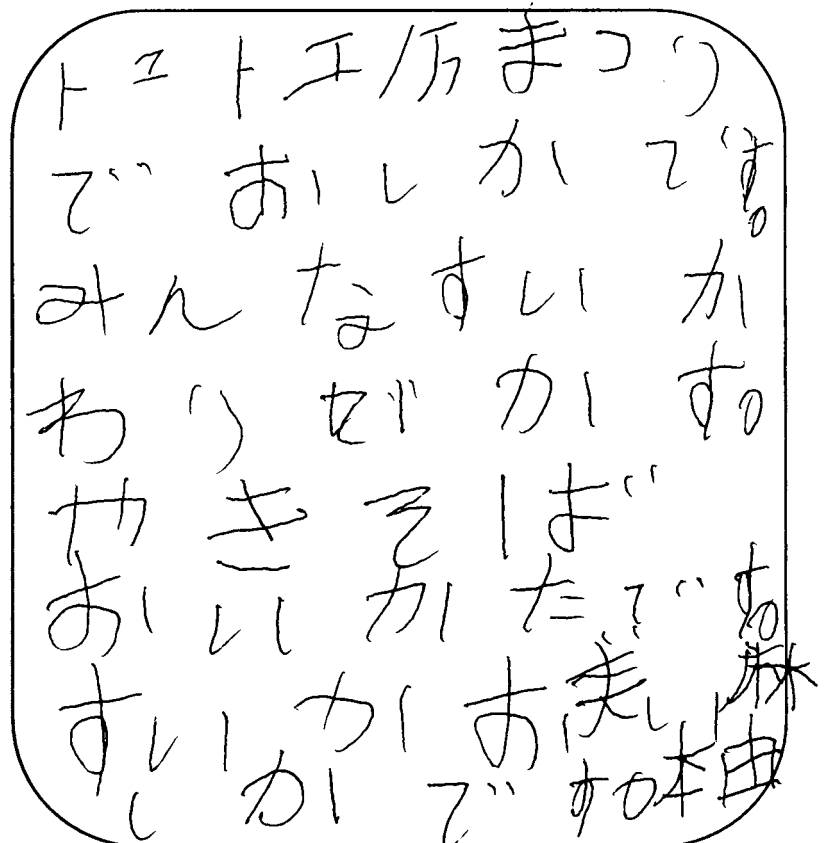 トユト工房まつり
でおしかです。
みんなすいか
わりぜかす。
やきそば
おいかたです。
すいかお
しかです。